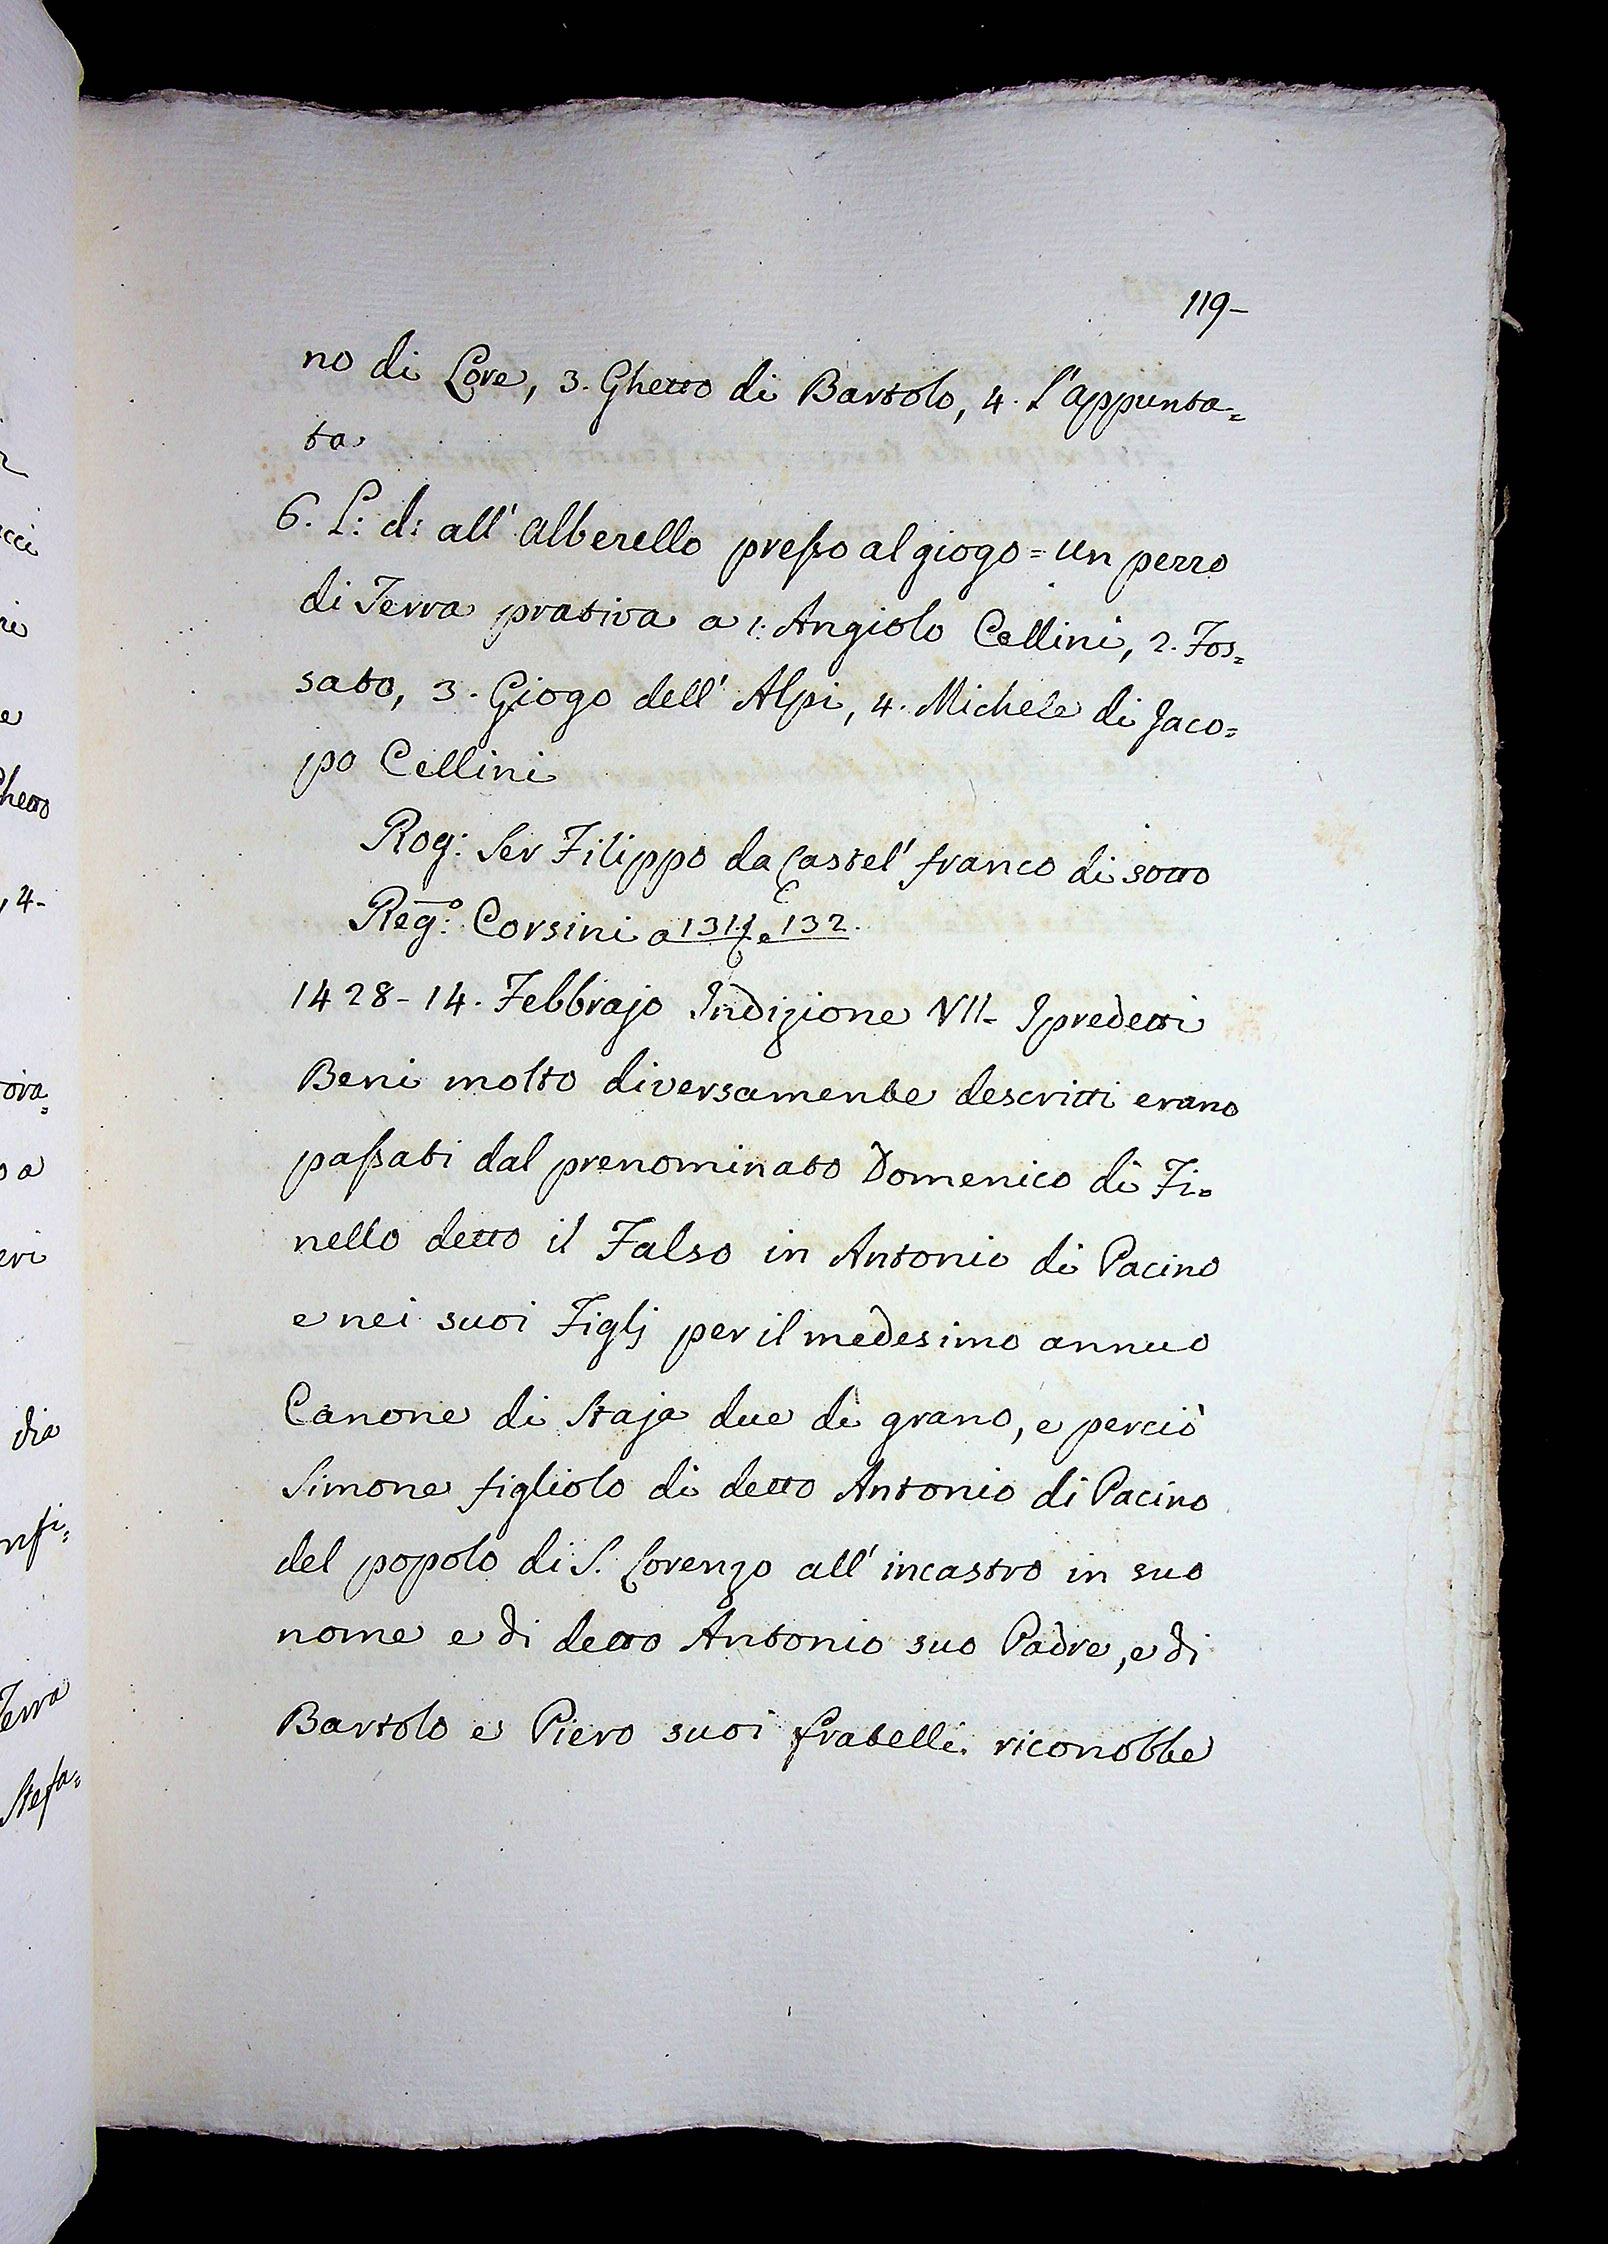 119-
no di Lore, 3. Ghetto di Bartolo, 4. l'appunta=
ta
6. L: d: all' alberello presso al giogo = un pezzo
di Terra prativa a 1: Angiolo Cellini, 2. Fos=
sato, 3. Giogo dell' Alpi, 4. Michele di Jaco=
po Cellini
Rog: Ser Filippo da Castel' franco di sotto
Reg:o Corsini a 131 e 132.
1428 - 14. Febbrajo Indizione VII- I predetti
Beni molto diversamente descritti erano
passati dal prenominato Domenico di Fi=
nello detto il Falso in Antonio di Pacino
e nei suoi Figlj per il medesimo annuo
Canone di Staja due di grano, e perciò
Simone figliolo di detto Antonio di Pacino
del popolo di S. Lorenzo all' incastro in suo
nome e di detto Antonio suo Padre, e di
Bartolo e Piero suoi fratelli riconobbe
cci
Ghetto
, 4-
ova=
o a
eri
dia
Terra
Stefa=